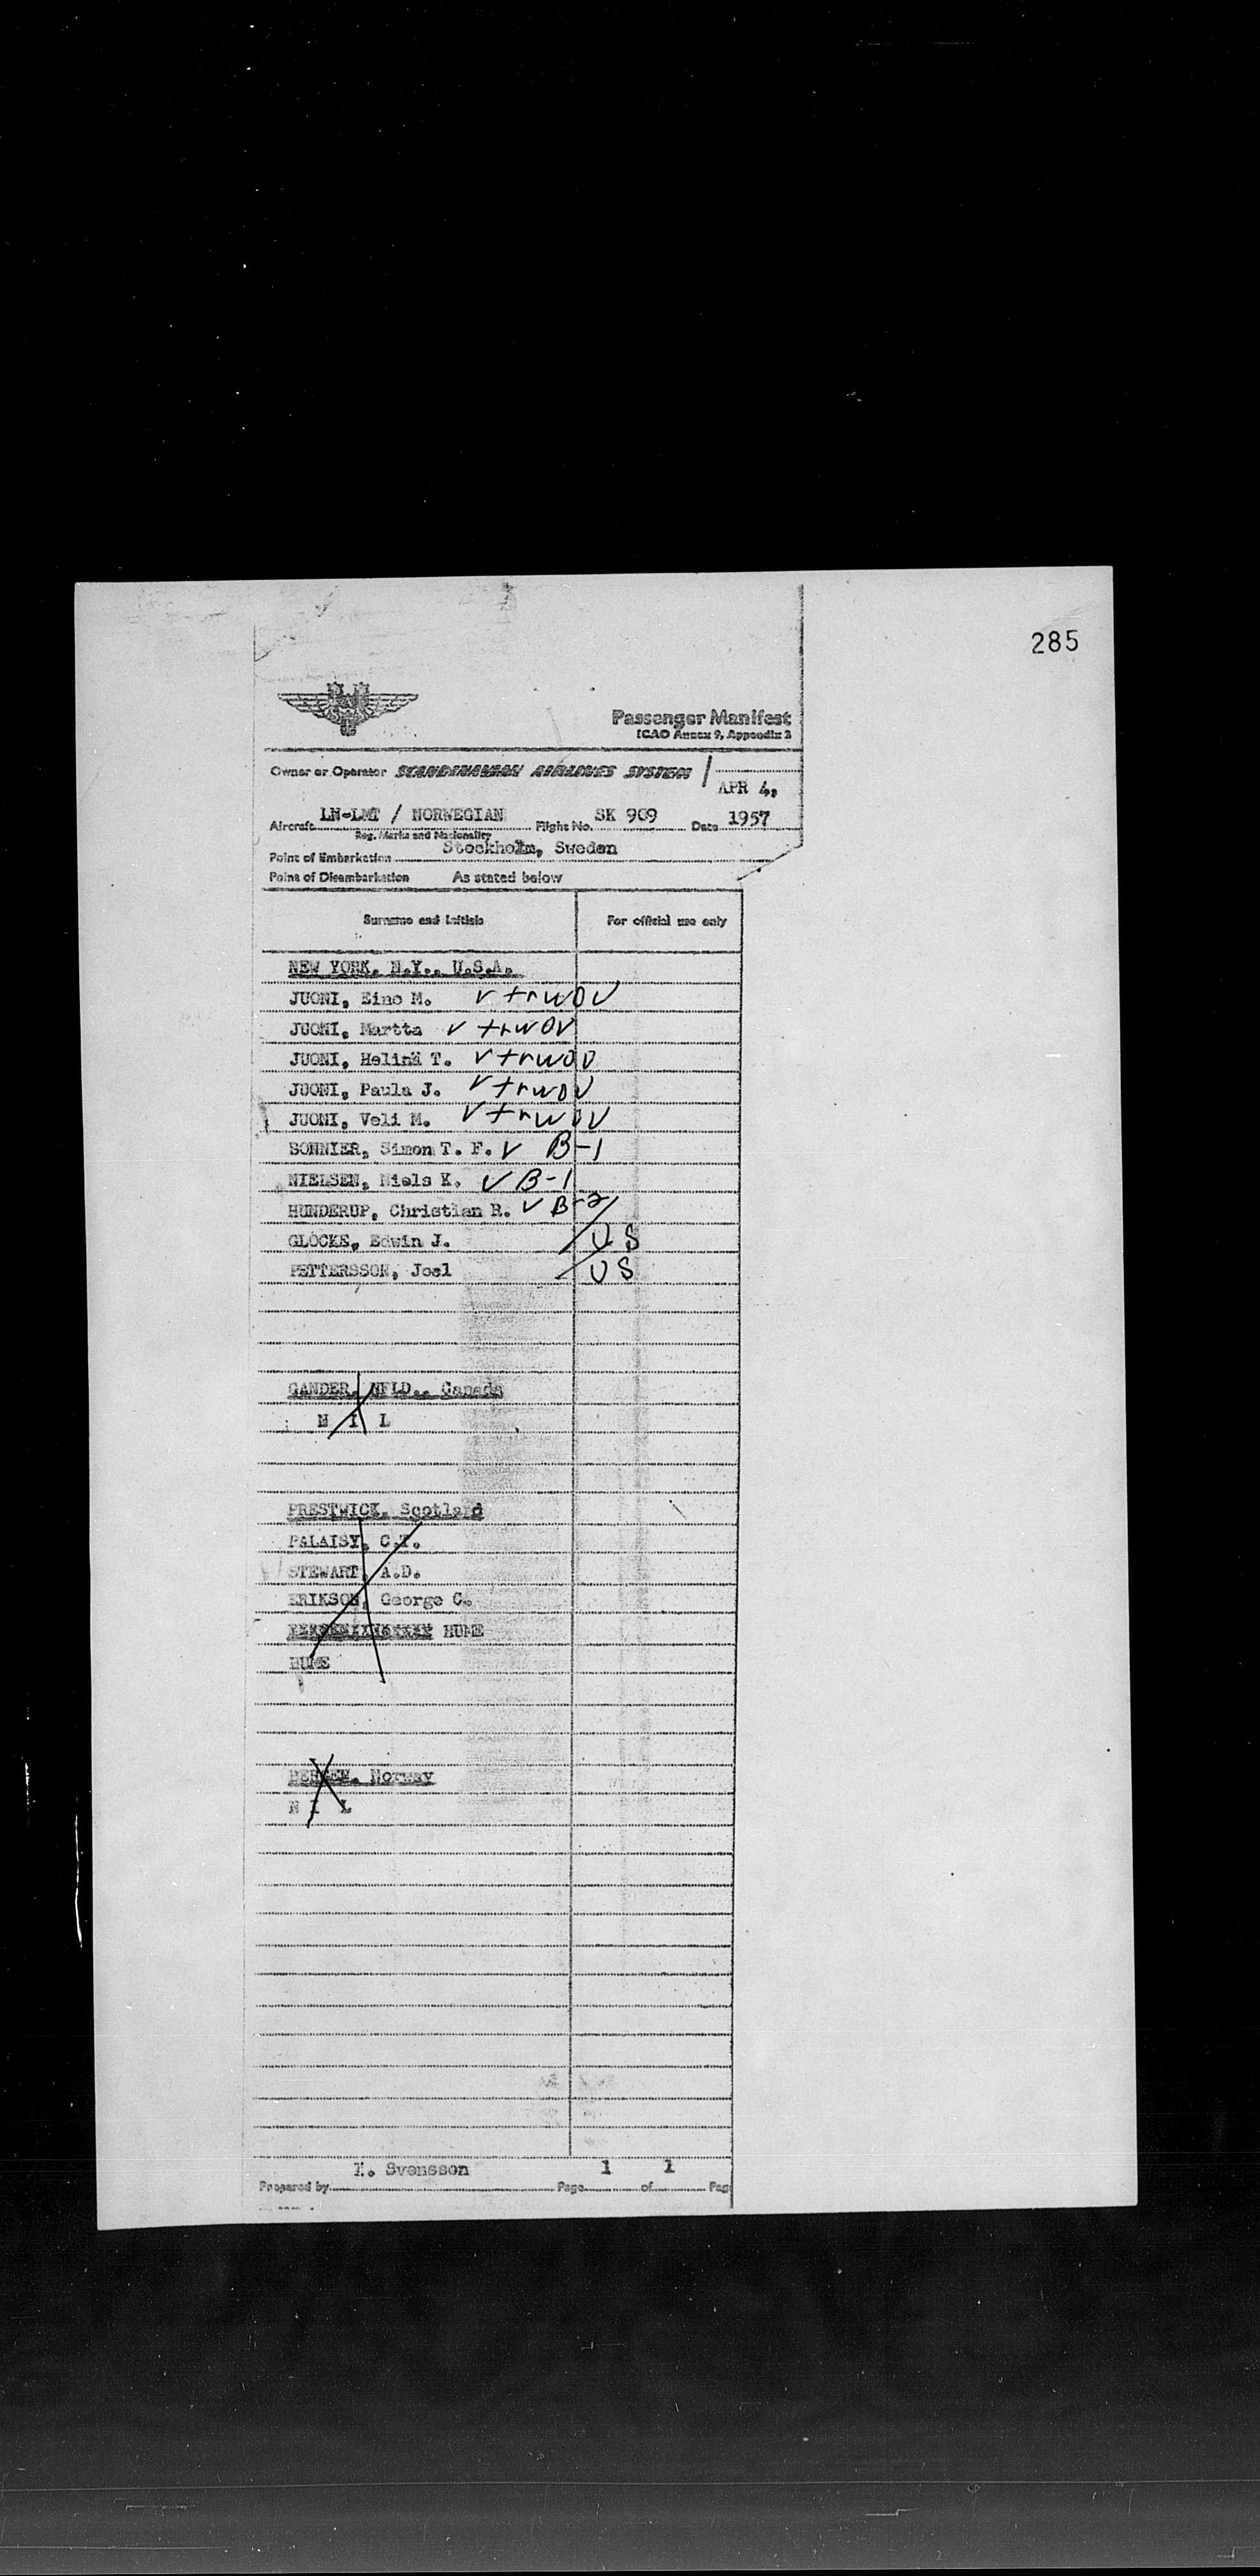 285
Passenger Manifest
ICAO Annex 9, Appendix 3
Owner or Operator SCANDINAVIAN AIRLINES SYSTEM
APR 4,
Aircraft LN-LMT / NORWEGIAN Flight No. SK 909 Date 1957
Reg. Marks and Nationality
Point of Embarkation Stockholm, Sweden
Point of Disembarkation As stated below
Surname and Initials For official use only
NEW YORK, N.Y., U.S.A.
JUONI, Eino M. V trwov
JUONI, Martta V trwov
JUONI, Helinä T. V trwov
JUONI, Paula J. V trwov
JUONI, Veli M. V trwov
SONNIER, Simon T. F. V B-1
NIELSEN, Niels K. V B-1
HUNDERUP, Christian R. V B-2
GLOCKE, Edwin J. US
PETTERSSON, Joel US
GANDER, NFLD., Canada
N I L
PRESTWICK, Scotland
PALAISY, C.T.
STEWART, A.D.
ERIKSON, George C.
HUME
HUME
BERGEN, Norway
N I L
Prepared by Svensson Page 1 of 1 Pag